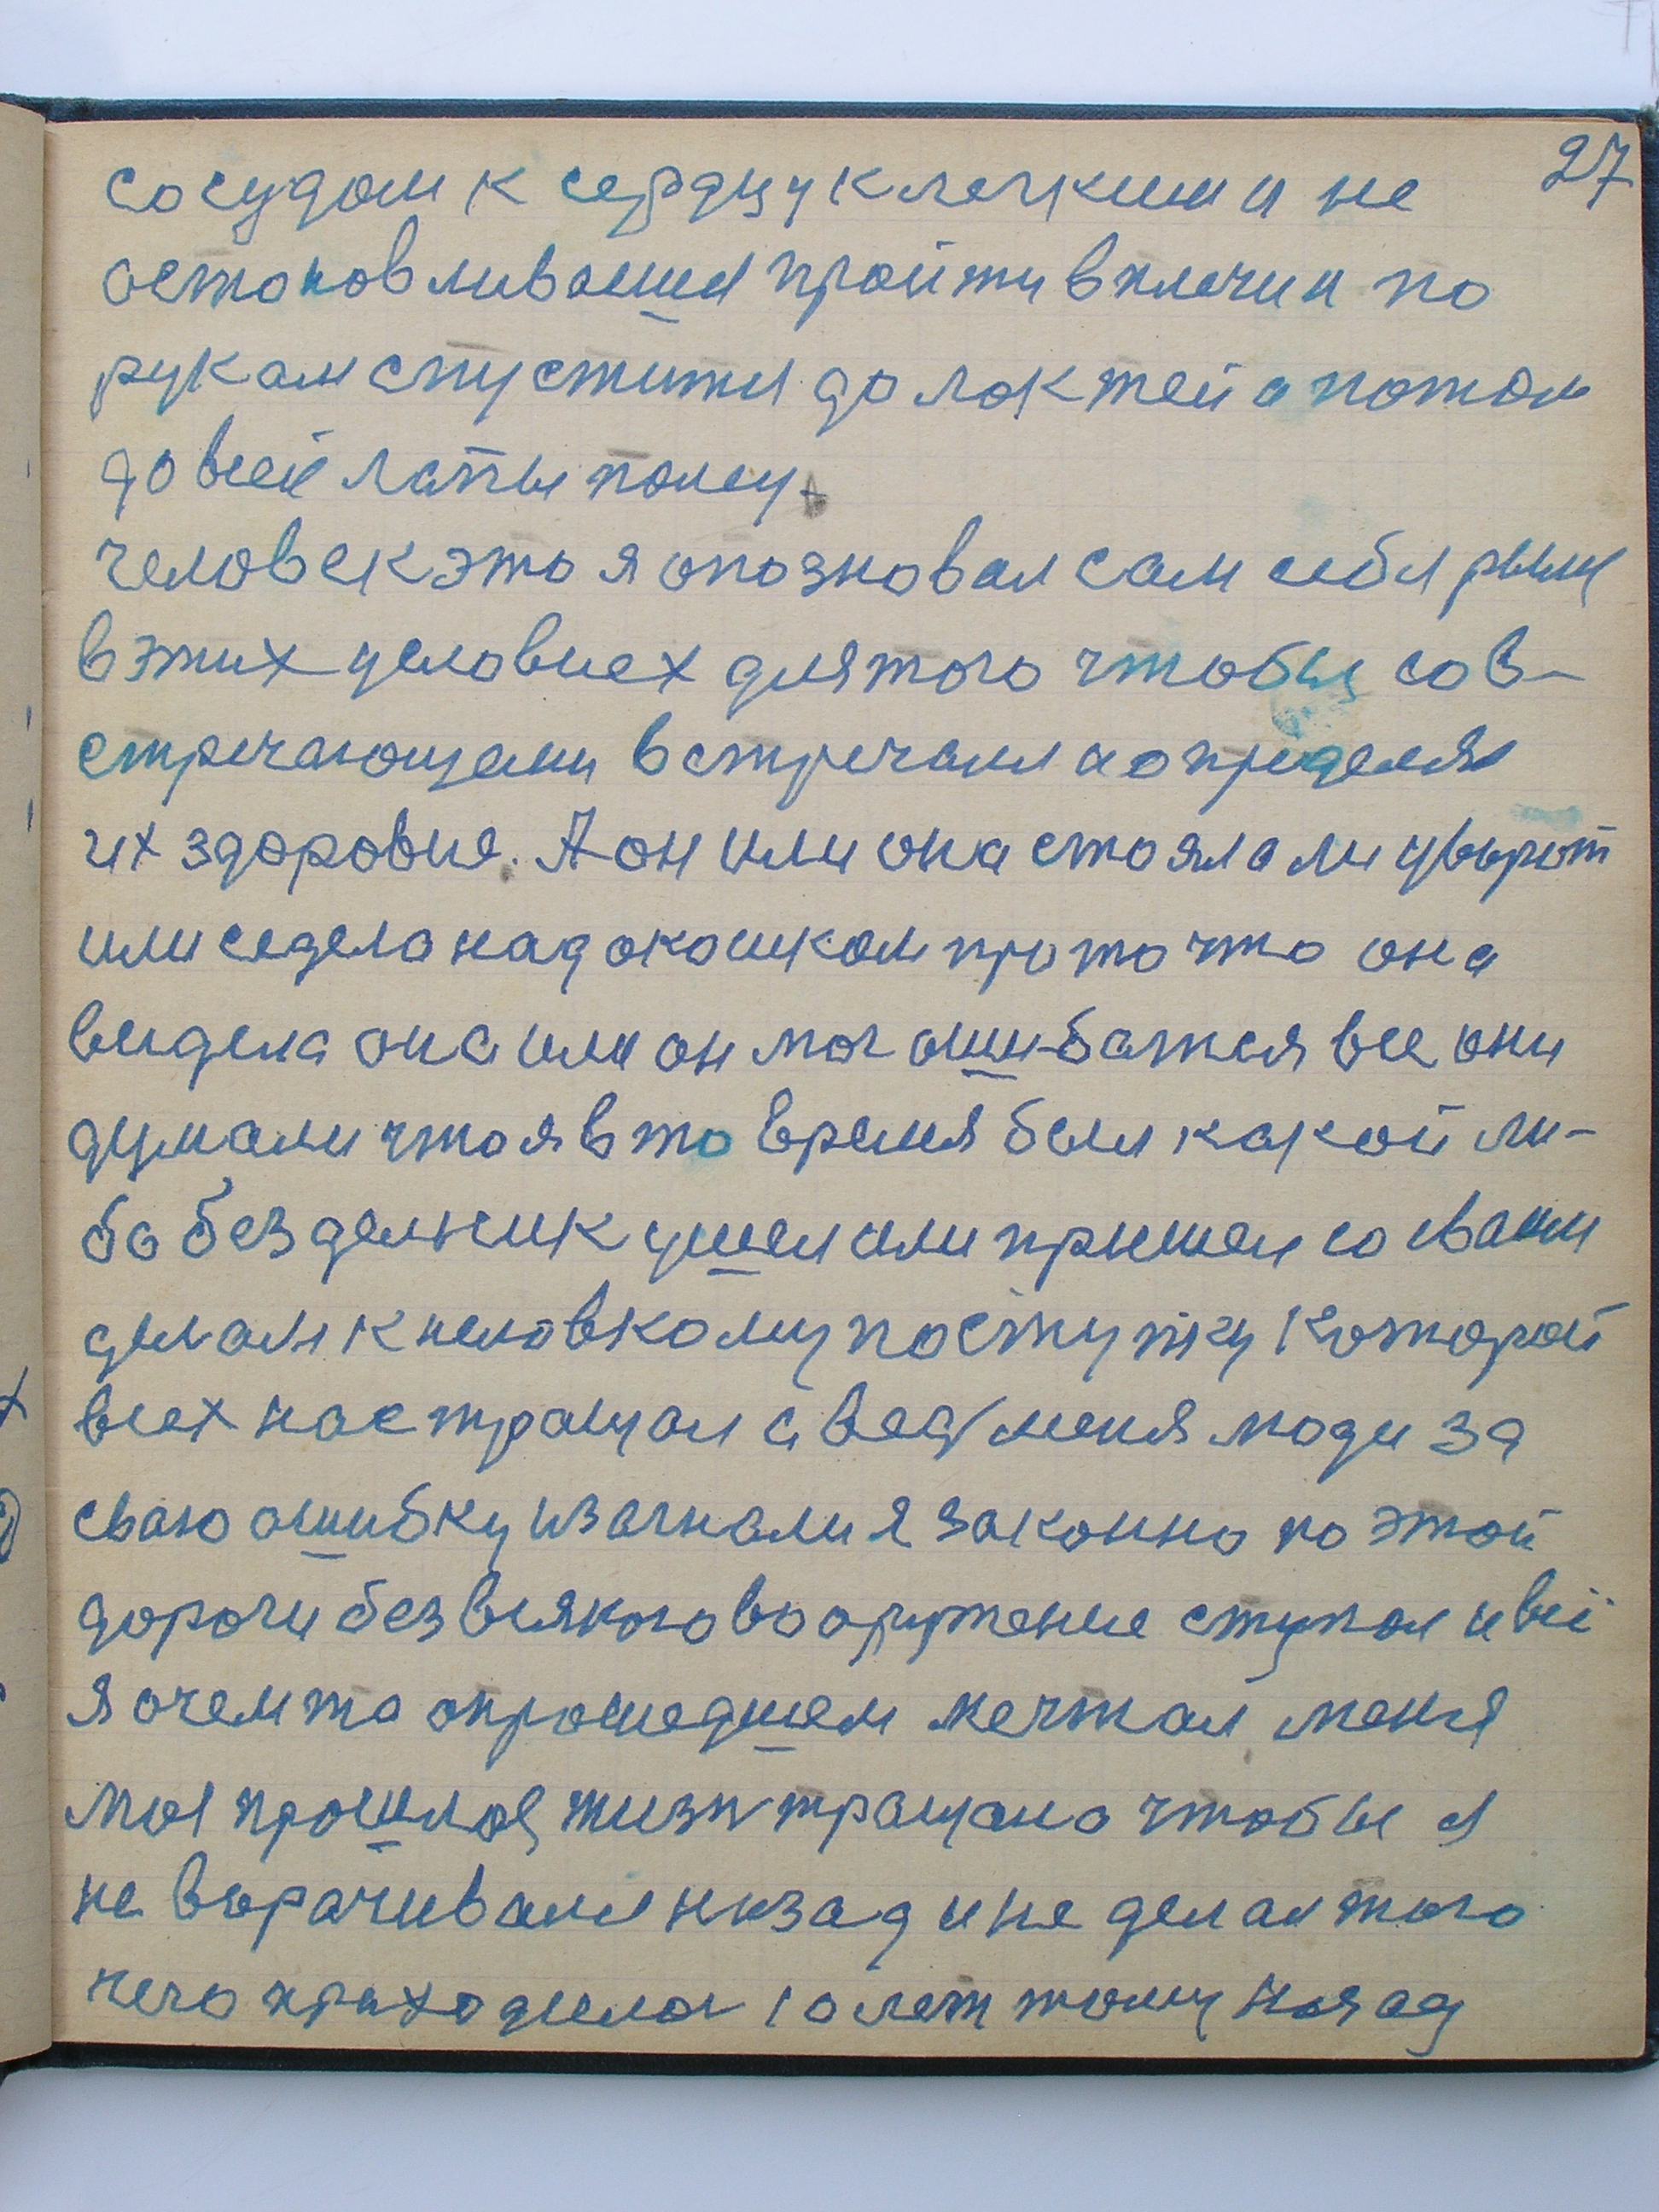 27
сосудам к сердцу к легкими и не
остоновливаеися пройти в плечи и по
рукам спустится до локтей а потом
до всей лапы полсу.
человек это я опозновал сам себя
в этих условиех для того чтобы сов-
стречающеми встречался а определял
их здоровие. А он или она стояла ли уворот
или седела над окошком про то что она
видела она или он мог ошибатся все они
думали что я в то время был какой ли-
бо бездельник ушел или пришел со сваими
делам к неловкому поступку Которой
всех настращал а ведь меня люди за
сваю ошибку изагнали я законно по этой
дороги без всякого вооружение ступал и все
я очем то опрошедшем мечтал меня
моя прошлоя жизн тращало чтобы я
не ворачивался низад и не делал того
чего приходилос 10 лет тому назад